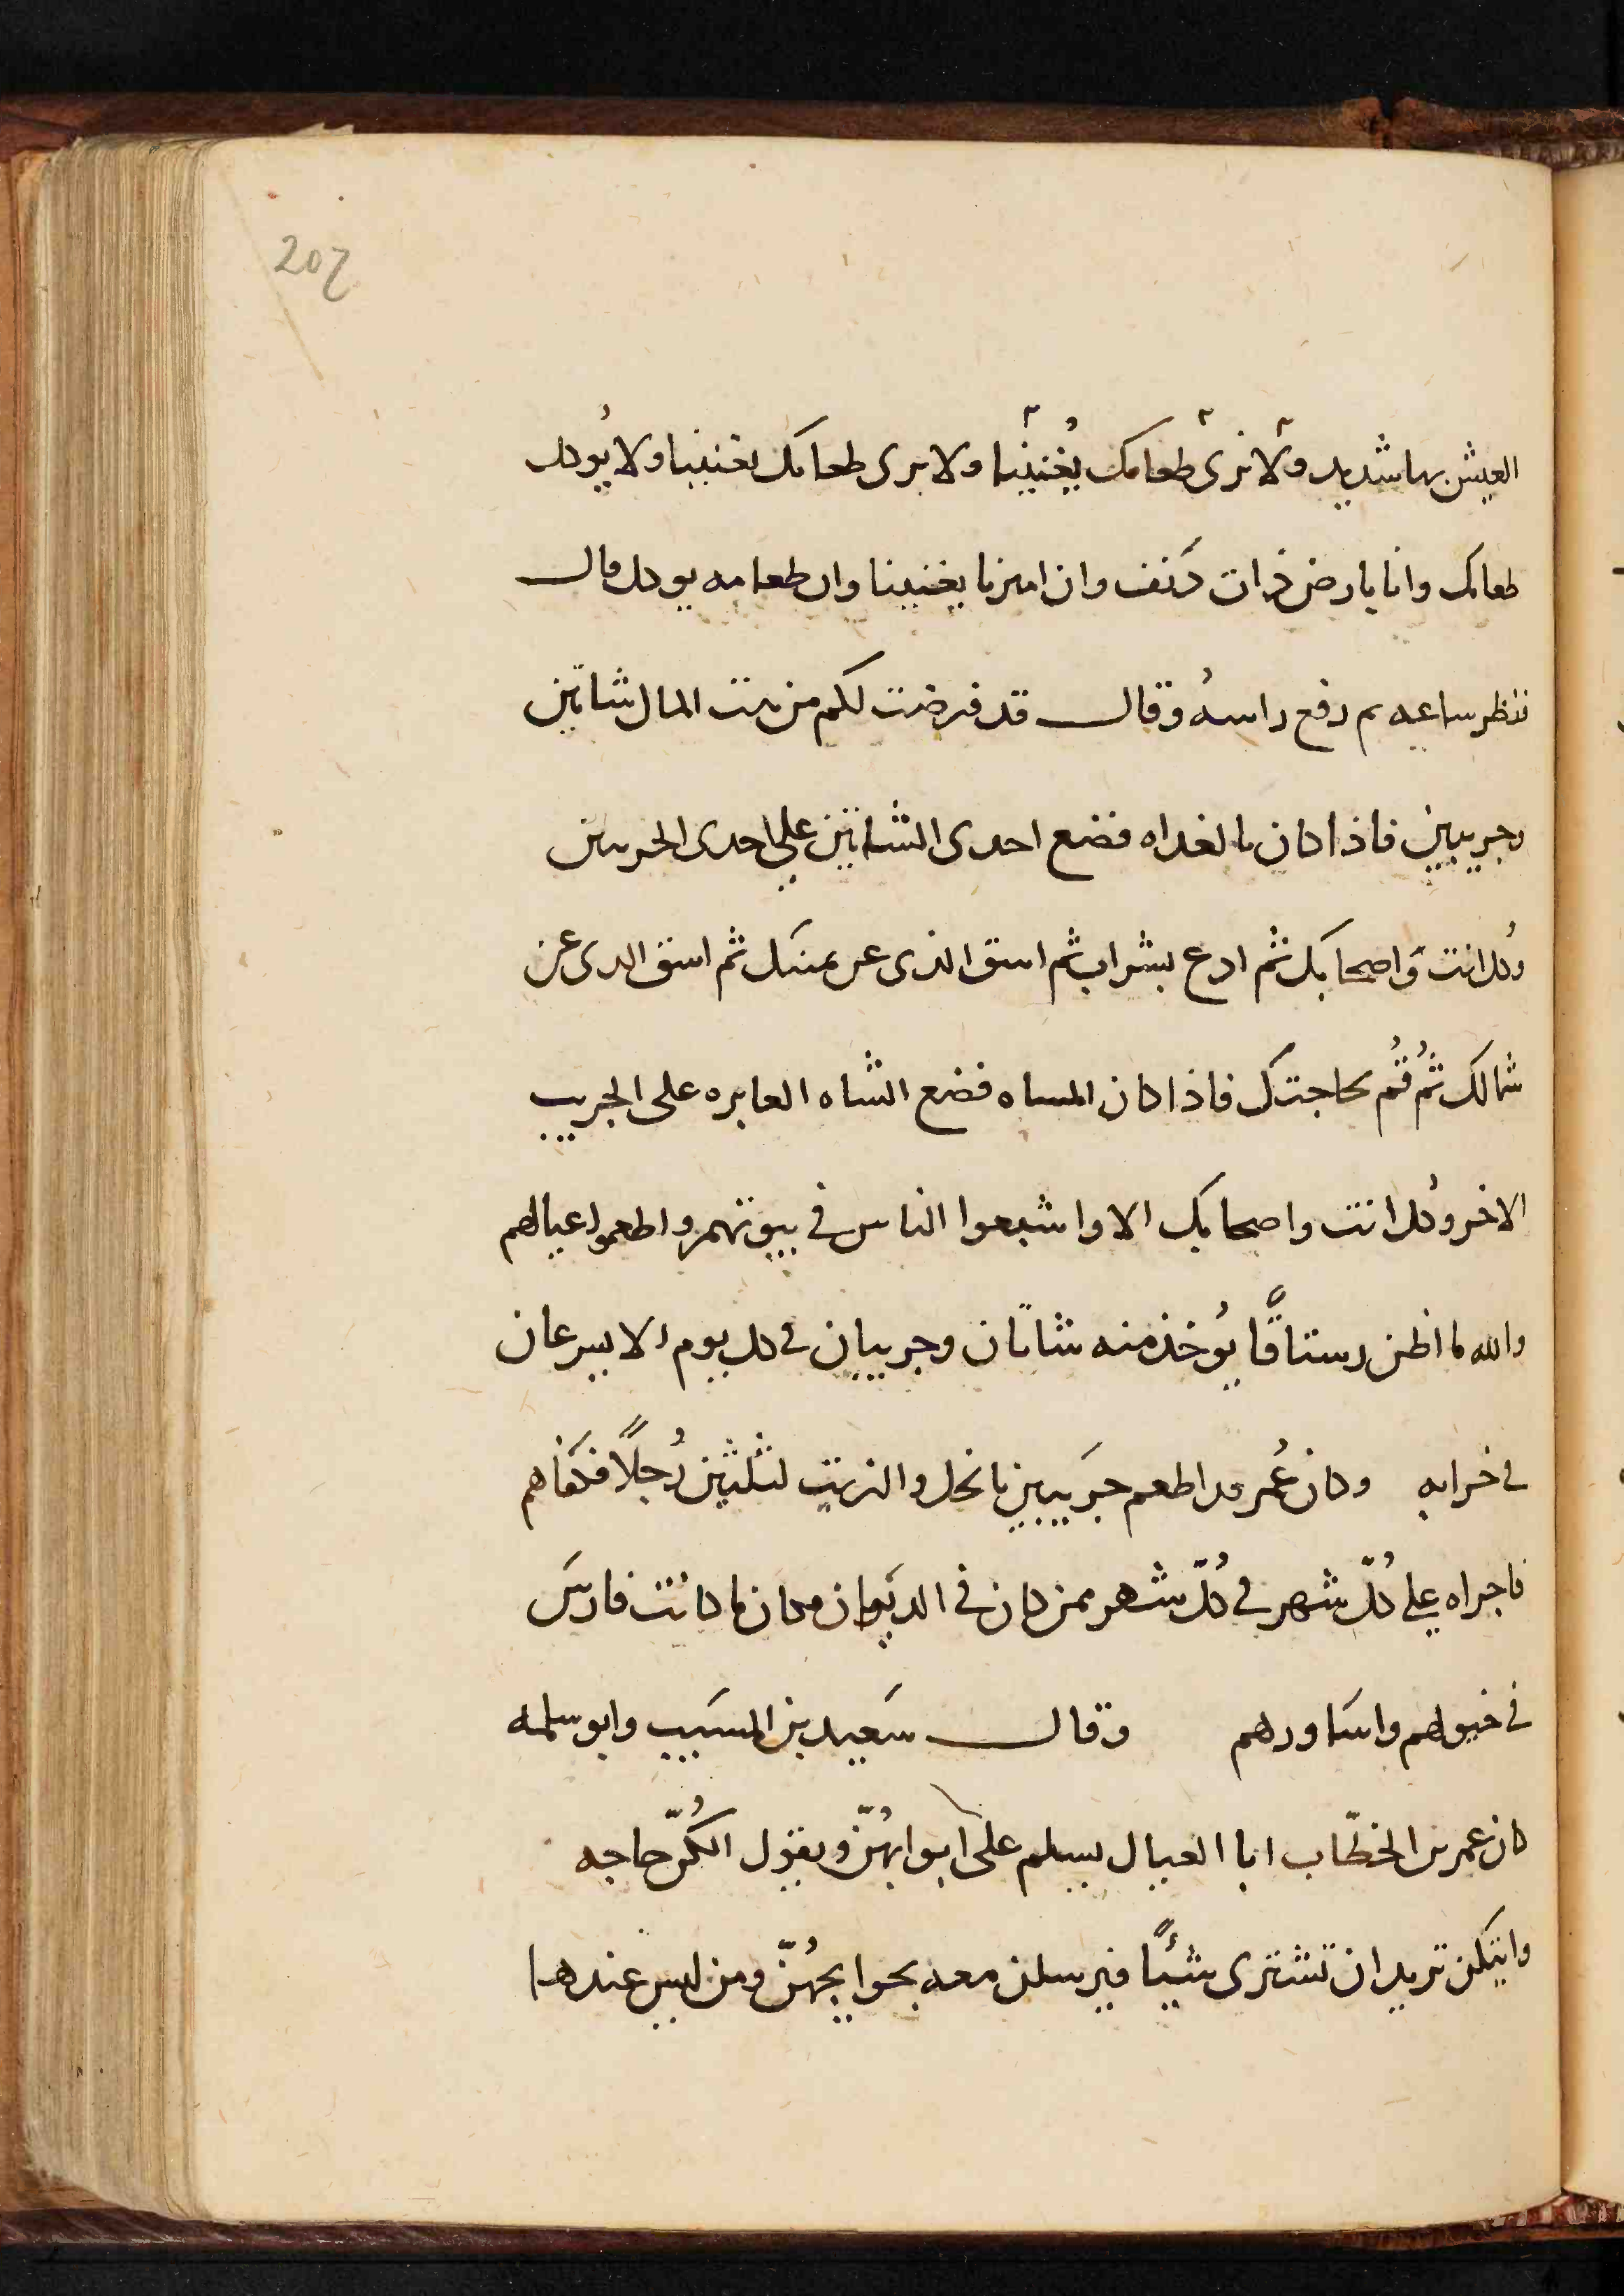 207
العيش بها شديد ولا نرى طعامك يُغنينا ولا يرى طعامك يغنينا ولا يُوكل
طعامك وانا بارض ذات كنف وان اميرنا يغنينا وان طعامه يوكل قال
فنظر ساعه ثم رفع راسهُ وقال قد فرضت لكم من بيت المال شاتين
وجريبين فاذا كان بالغداه فضع احدى الشاتين على احدى الجريبين
وكل انت واصحابك ثم ادع بشراب ثم اسق الذى عن يمينك ثم اسق الذى عن
شمالك ثُم قُم لحاجتك فاذا كان المساه فضع الشاه العابره على الجريب
الاخر وكُل انت واصحابك الا واشبعوا الناس فى بيوتهم واطعموا عيالهم
والله ما اظن رستاقًا يُوخذ منه شاتان وجريبان فى كل يوم الا يسرعان
فى خرابه وكان عُمر قد اطعم جريبين بالخل والزيت لثلثين رُجلًا فكفاهم
فاجراه على كُلّ شهر فى كُلّ شهر ممن كان فى الديوان مكان ما كانت فارس
فى خيولهم واساورهم وقال سَعيد بن المسَيب وابو سلمه
كان عمر بن الخطّاب ابا العيال يسلم على ابوابهُنّ ويقول الكُنّ حاجه
وايتكن تريد ان تشترى شيئًا فيرسلن معه بحوايجهُنّ ومن ليس عندها